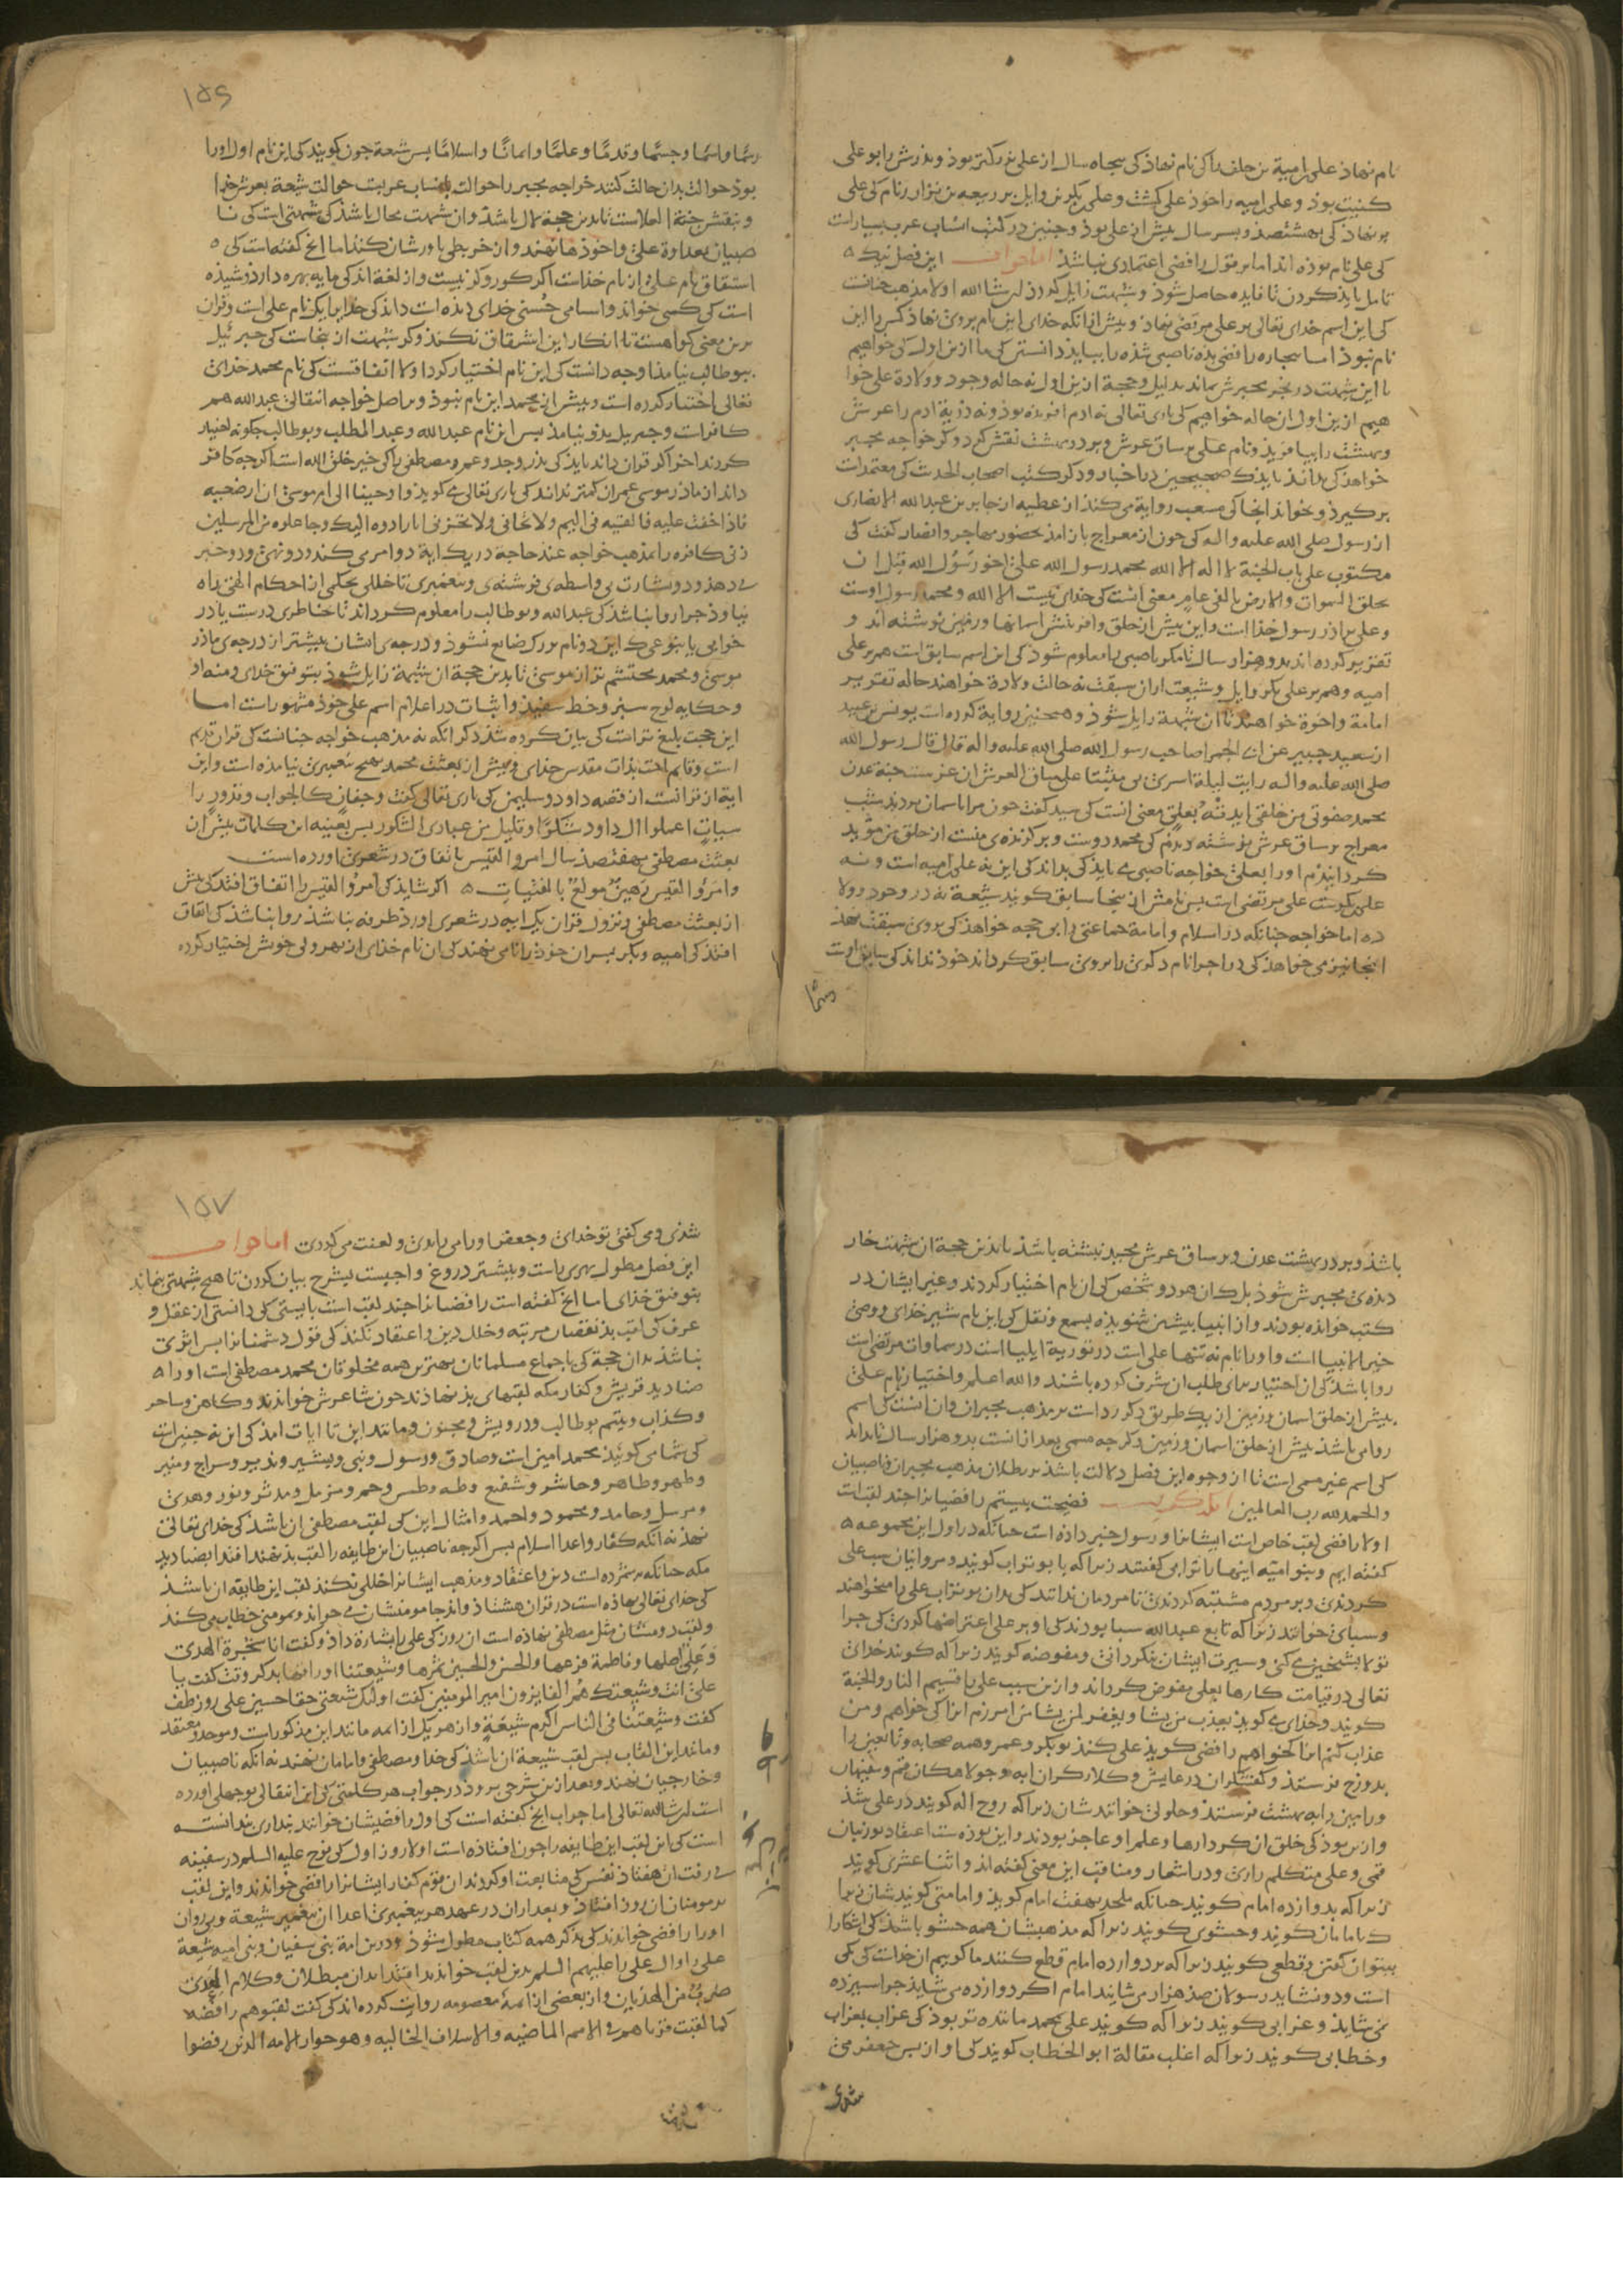 نام نهاذ علی بن امیة بن خلف را کی نام نهاذ کی بنجاه سال از علی بزرگتر بوذ و بذرش را بو علی
کنیت بوذ و علی امیه را خوذ علی کشت و علی بکر بن وایل بن ربیعه بن نزار را نام کی علی
بر نهاذ کی بهشتصد و بیست سال بیش از علی بوذ و جنین در کتب انساب عرب بسیارست
کی علی نام بوذه اند اما بر قول رافضی اعتمادی نباشذ اما جواب این فصل نیک
تامل بایذ کردن تا فایده حاصل شوذ و شبهت زایل گردذ ان شا الله اولا مذهب جنانست
کی این اسم خدای تعالی بر علی مرتضی نهاذ و بیش از آنکه خدای این نام بروی نهاذ کس را این
نام نبوذ اما بیجاره رافضی بذه ناصبی شذه را ببایذ دانستن کی ما ازین اول کی خواهیم
با این شبهت در بحر مجبرش بماند بدلیل و حجة ازین اول نه حاله وجود و ولادة علی خوا
هیم ازین اول آن حاله خواهیم کی باری تعالی نه ادم آفریذه بوذ و نه ذریة ادم را عرش
و بهشت را بیافریذ و نام علی بر ساق عرش و بر در بهشت نقش کرد و کر خواجه مجبر
خواهذ کی بدانذ بایذ که صحیحین را با خبار و دکر کتب اصحاب الحدیث کی معتمدات
بر کیرذ و بخواند انجا کی مسعب روایة می کند از عطیه از جابر بن عبد الله الانصاری
از رسول صلی الله علیه و اله کی جون از معراج باز امذ بحضور مهاجر و انصار گفت کی
مکتوب علی باب الجنة لا اله الا الله محمد رسول الله علی اخو رسول الله قبل ان
یخلق السموات والارض بالفی عام معنی انست کی خدای نیست الا الله و محمد رسول اوست
و علی براذر رسول خذا است و این بیش از خلق و افرینش اسمانها و زمین نوشته اند و
تقریر کرده اند بدو هزار سال تا مکر ناصبی را معلوم شوذ کی این اسم سابق است هم بر علی
امیه و هم بر علی بکر وایل و شیعت از ان سبقت نه حالت ولادة خواهند حاله تقریر
امامة و اخوة خواهند تا ان شبهة زایل شوذ و همجنین روایة کرده است یونس بن عبید
از سعید جبیر عن ابی الحمرا صاحب رسول الله صلی الله علیه و اله قال قال رسول الله
صلی الله علیه و اله رایت لیلة اسری بی مثبتا علی ساق العرش ان غرست جنة عدن
محمد صفوتی من خلقی ایدته بعلی معنی انست کی سید گفت جون مرا باسمان بردند بشب
معراج بر ساق عرش نوشته دیذم کی محمد دوست و برگزیذه ی منست از خلق من موید
کردانیذم او را بعلی خواجه ناصبی بایذ کی بداند کی این نه علی امیه است و نه
علی بکرست علی مرتضی است بس نامش از ینجا سابق کویند شیعة نه در وجود و ولا
ده اما خواجه جنانکه در اسلام و امامة جماعتی را بی حجه خواهذ کی بروی سبقت نهذ
اینجا نیز می خواهذ کی در اجرا نام دکری را بروی سابق کرداند خوذ نداند کی سابق اوست
رسمًا
١٥٦
رسمًا واسمًا و جسمًا و قدمًا و علمًا و ایمانًا و اسلامًا بس شیعة جون کویند کی این نام اول او را
بوذ حوالت بدان حالت کنند خواجه مجبر را حوالت بانساب عربست حوالت شیعة بعرش خدا
و بنقش جنة الخلاست تا بدین حجة زایل باشذ و ان شبهت محال باشذ کی شبهتی است کی نا
صبیان بعداوة علی واخوذ ها نهند و از خریطی باورشان کنند اما انج کفته است کی
اشتقاق نام علی از نام خداست اکر کور و کر نیست و از لغة اندکی مایه بهره دارذ شنیذه
است کی کسی خواند و اسامی حسنی خدای دیذه است داند کی خدای را یک نام علی است و قران
برین معنی کواهست تا انکار این اشتقاق نکند و کر شبهت از ینجاست کی جبرئیل
ببوطالب نیامذ او جه دانست کی این نام اختیار کرد اولا اتفاقست کی نام محمد خدای
تعالی اختیار کرده است و بیش از محمد این نام نبوذ و بر اصل خواجه انتقالی عبد الله هم
کافرست و جبریل بذو نیامذ بس این نام عبد الله و عبد المطلب و بوطالب جکونه اختیار
کردند اخر اکر قران داند بایذ کی بذر و جد و عمر و مصطفی را کی خیر خلق الله است اکرجه کافر
داند از ماذر موسی عمران کمتر نداند کی باری تعالی می کوید و اوحینا الی ام موسی ان ارضعیه
فاذا خفت علیه فالقیه فی الیم و لا تخافی و لا تحزنی انا رادوه الیک و جاعلوه من المرسلین
زنی کافره را بمذهب خواجه عند حاجة در یک ایة دو امر می کند و دو نهی و دو خبر
می دهد و دو بشارت بی واسطه ی فرشته ی و بیغمبری تا خللی بحکمی از احکام الهی راه
نیاوذ جرا روا نباشذ کی عبد الله و بوطالب را معلوم کرداند تا بخاطری درست یا در
خوابی یا بنوعی که این دو نام بزرک ضایع نشوذ و درجه ی ایشان بیشتر از درجه ی ماذر
موسی و محمد محتشم تر از موسی تا بدین حجة ان شبهة زایل شوذ بتوفیق خدای و منه او
و حکایه لوح سبز و خط سفیذ و ابیات در اعلام اسم علی خوذ مشهورست اما
این حجت بلیغ ترست کی بیان کرده شذ دکر انکه نه مذهب خواجه جنانست کی قران قدیم
است و قایم است بذات مقدس خدای و بیش از بعثت محمد بهیج بیغمبری نیامذه است و این
ایة از قرانست از قصه داود و سلیمن کی باری تعالی گفت و جفان کالجواب و قدور را
سیات اعملوا ال داود شکرًا و قلیل من عبادی الشکور بس بعینه این کلمات بیش از
بعثت مصطفی بهفتصد سال امرؤ القیس باتفاق در شعری اورده است
وامرؤ القیس رهین مولع بالفتیات اکر شایذ کی امرؤ القیس را اتفاق افتد کی بیش
از بعثت مصطفی و نزول قران یک ایه در شعری اورد طرفه نباشذ روا نباشذ کی اتفاق
افتذ کی امیه و بکر بسران خوذ را نامی نهند کی ان نام خدای از بهر ولی خویش اختیار کرده
باشذ و بر در بهشت عدن و بر ساق عرش مجید نبشته باشذ تا بذین حجة ان شبهت خار
دیذه ی مجبرش شوذ بلک ان هر دو شخص کی ان نام اختیار کردند و غیر ایشان در
کتب خوانده بودند و از انبیا بیشین شنویذه بسمع و نقل کی این نام شیر خدای و وصی
خیر الانبیا است و او را نام نه تنها علی است در توریة ایلیا است در سماوات مرتضی است
روا باشذ کی ان اختیار برای طلب ان شرف کرده باشند و الله اعلم و اختیار نام علی
بیش از خلق اسمان و زمین از یک طریق دکر ردست بر مذهب مجبران و ان انست کی اسم
روا می باشذ بیش از خلق اسمان و زمین و کرجه مسمی بعد از انست بدو هزار سال تا بداند
کی اسم غیر مسمی است تا از وجوه این فصل دلالت باشذ بر بطلان مذهب مجبران و ناصبیان
والحمد لله رب العالمین انکه گفت فضیحت بیستم رافضیان را جند لقبست
اولا رافضی لقب خاص است ایشان را و رسول خبر داذه است جنانکه در اول این مجموعه
گفته ایم و بنو امیه اینها را ترابی گفتند زیرا که با بو تراب کویند و مروانیان سب علی
کردندی و بر مردم مشتبه کردندی تا مردمان ندانند کی بدان بو تراب علی را میخواهند
و سبائی خوانند زیرا که تابع عبد الله سبا بودند کی او بر علی اعتراضها کردی کی جرا
تولا بشیخین می کنی و سیرت ایشان بنکردانی و مفوضه کویند زیرا که کویند خدای
تعالی در قیامت کارها بعلی مفوض کرداند و ازین سبب علی را قسیم النار والجنة
کویند و خدای می کوید یعذب من یشا و یغفر لمن یشا من امرزم انرا کی خواهم و من
عذاب کنم انرا کی خواهم رافضی کویذ علی کند بوبکر و عمر و همه صحابه و تابعین را
بدوزخ فرستد و کفشگران درعایش و کلاه گران ابه و جولاهکان قم و سفیهان
ورامین را به بهشت فرستد و حلولی خوانندشان زیرا که روح اله کویند در علی شذ
و از بن بوذ کی خلق از کردارها و علم او عاجز بودند و این بوذه ست اعتقاد بورنبان
قمی و علی متکلم رازی و در اشعار و مناقب این معنی گفته اند و اثنا عشری کویند
زیرا که بدوازده امام کویند جنانکه ملحد بهفت امام کویذ و امامتی کویندشان زیرا
که باما مان کویند و حشوی کویند زیرا که مذهبشان همه حشو باشذ کی اشکارا
نتوان گفتن و قطعی کویند زیرا که بر دوازده امام قطع کنند ما کوییم ان خداست کی یکی
است و دو نشاید رسولان صد هزار می شایند امام اکر دوازده می شاید جرا سیزده
نمی شایذ و غرابی کویند زیرا که کویند علی بمحمد ماننده تر بوذ کی غراب بغراب
و خطابی کویند زیرا که اغلب مقالة ابو الخطاب کویند کی او از بس جعفر می
شدی
١٥٧
شذی و می گفتی تو خدای و جعفر او را می راندی و لعنت می کردی اما جواب
این فصل مطول بهری راست و بیشتر دروغ واجبست بشرح بیان کردن تا هیج شبهتی نماند
بتوفیق خدای اما انج گفته است رافضیان را جند لقب است بایستی کی دانستی از عقل و
عرف کی لقب بد نقصان مرتبه و خلل دین و اعتقاد نکند کی قول دشمنان را بس اثری
نباشذ بدان حجة کی باجماع مسلمانان بهترین همه مخلوقان محمد مصطفی است او را
صنادید قریش و کفار مکه لقبهای بذ نهاذند جون شاعرش خواندند و کاهن و ساحر
و کذاب و یتیم بوطالب و درویش و مجنون و مانند این تا ایات امذ کی این نه جنین است
کی شما می کویند محمد امین است و صادق و رسول و نبی و بشیر و نذیر و سراج و منیر
و طهر و طاهر و حاشر و شفیع و طه و طس و حم و مزمل و مدثر و نور و هدی
و مرسل و حامد و محمود و احمد و امثال این کی لقب مصطفی ان باشذ کی خدای تعالی
نهذ نه انکه کفار و اعدا اسلام بس اکرجه ناصبیان این طایفه را لقب بذ نهند اقتدا بصنادید
مکه جنانکه برشمرده است دین و اعتقاد و مذهب ایشان را خللی نکند لقب این طایفه ان باشذ
کی خدای تعالی نهاذه است در قران هشتاذ و اند جا مومنشان می خواند و بمومنی خطاب می کند
و لقب دوستان مثل مصطفی نهاذه است ان روز کی علی را بشارة داذ و کفت انا شجرة الهدی
و علی اصلها و فاطمة فرعها والحسن والحسین ثمرها و شیعتنا اوراقها بدکر وقت کفت یا
علی انت و شیعتک هم الفایزون امیر المومنین کفت اولئک شیعتی حقا حسین علی روز طف
کفت و شیعتنا فی الناس اکرم شیعة و از هر یک از ایمه مانند این مذکورست و موحد و معتقد
و مانند این القاب بس لقب شیعة ان باشذ کی خدا و مصطفی و امامان نهند نه انکه ناصبیان
و خارجیان نهند و بعد ازین شرحی بروذ در جواب هر کلمتی کی این انتقالی بوجهلی اورده
است ان شا الله تعالی اما جواب انج گفته است کی اول رافضیشان خوانند بنداری ندانسته
است کی این لقب این طایفه را جون افتاذه است اولا روز اول کی نوح علیه السلم در سفینه
می رفت ان هفتاذ نفس کی متابعت او کردند ان قوم کفار ایشان را رافضی خواندند و این لقب
بر مومنان ان روز افتاذ و بعد از ان در عهد هر بیغمبری اعدا ان بیغمبر شیعة و بی روان
او را رافضی خواندند کی بذکر همه کتاب مطول شوذ و درین امة بنی سفیان و بنی امیه شیعة
علی را و ال علی را علیهم السلم بدین لقب خواندند اقتدا بدان مبطلان و کلام العدی
ضرب من الهذیان و از بعضی از ایمهٔ معصومه روایت کرده اند کی کفت لقبوهم رافضة
کما لقبت قرناهم فی الامم الماضیه والاسلاف الخالیه و هو حوار الامه الذین رفضوا